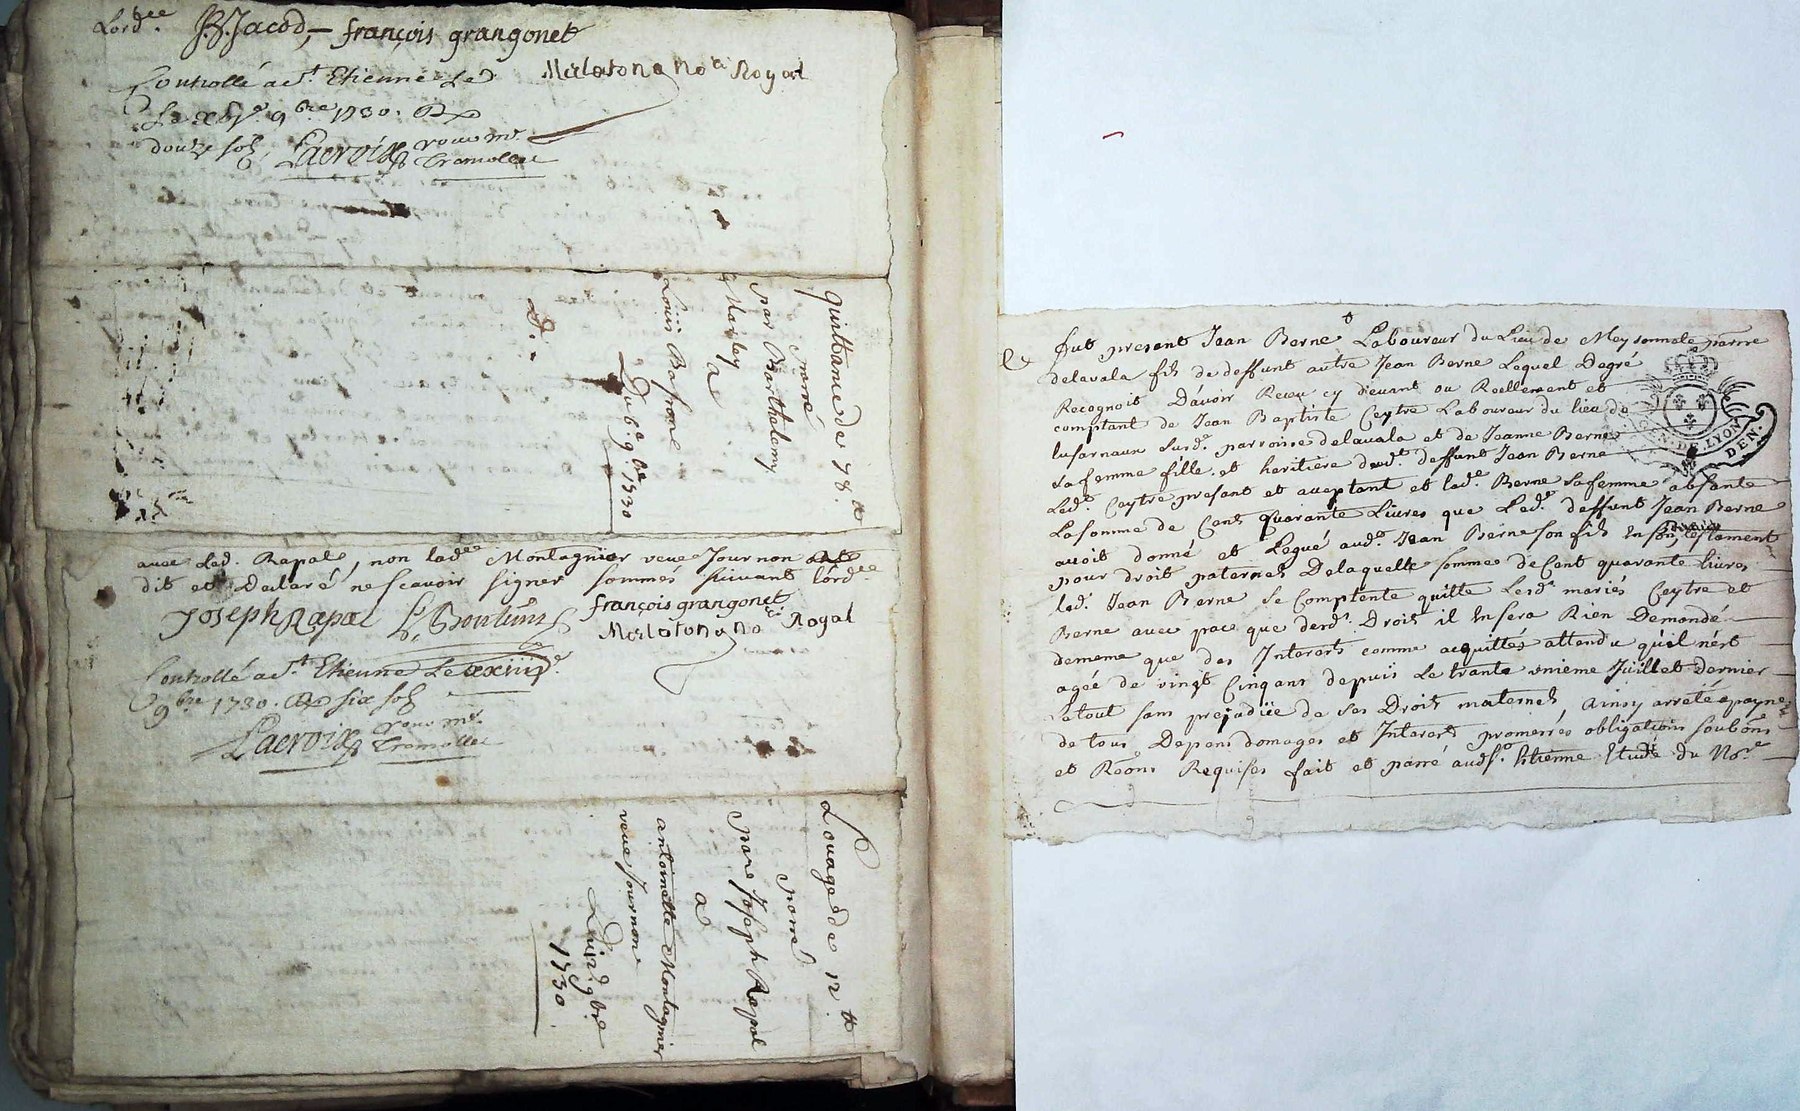 Lord.ce B. Jacod, – françois grangonet
Controllé a St. Etienne Le
Malatona No.re Royal
9.bre 1730. R.
douze sols Lacroix pour mr. Tramollet
quittance de 78.tt
passé
par Barthelemy
Marley
a
Louis Bafrone
Du 6.e 9.bre 1730
avec Led. Rapal, non lad.e Montagnier veue Journon
dit et declaré ne scavoir signer sommés suivant lord.ce
Joseph Rapal françois grangonet
Malatona No.re Royal
Controllé a St. Etienne Le xxiiij.e
9.bre 1730. R. six sols
Lacroix pour mr. Tramollet
Louage de 12.tt
passé
par Joseph Rapal
a
antoinette Montagnier
veue Journon
Du 9.bre
1730.
fut present Jean Berne Laboureur du Lieu de Meysonnale parroisse
delavala fils de deffunt autre Jean Berne Lequel Degré
Recognoit D'avoir Receu cy devant ou Reellement et
comptant de Jean Baptiste Ceytre Laboureur du lieu de
lusarnaux susd.e parroisse delavala et de Jeanne Berne
sa femme fille et heritiere dud.t deffunt Jean Berne
Led.e Ceytre present et acceptant et lad.e Berne sa femme absante
La somme de Cent Quarante Livres que Led.e deffunt Jean Berne
avoit donné et Legué aud.e Jean Berne son fils En son testament
pour droit paternel Delaquelle somme de Cent quarante livres
led.e Jean Berne se Comptente quitte Lesd.s mariés Ceytre et
Berne avec pace que desd.s Droits il En sera Rien Demandé
de meme que des Interests comme acquittés attendu qu'il n'est
agée de vingt Cinq ans depuis Le trante unieme Juillet dernier
Le tout sans prejudice de ses Droits maternels, ainsy arreté a payne
de tous Depens domages et Interests promesses obligations soubons
et Réons Requises fait et passé aud. St. Etienne Etude du No.re
GEN. DE LYON
DEN.